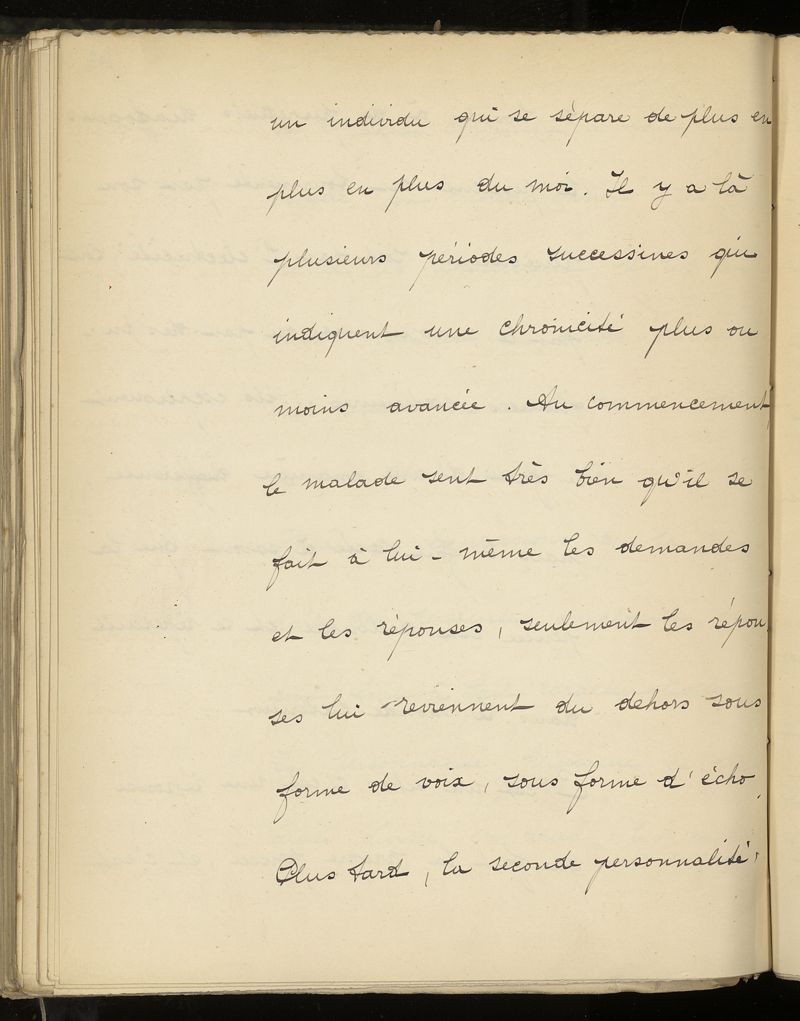 un individu qui se sépare de plus en
plus en plus du moi. Il y a là
plusieurs périodes successives qui
indiquent une chronicité plus ou
moins avancée. Au commencement,
le malade sent très bien qu'il se
fait à lui-même les demandes
et les réponses, seulement les répon
ses lui reviennent du dehors sous
forme de voix, sous forme d'écho.
Plus tard, la seconde personnalité